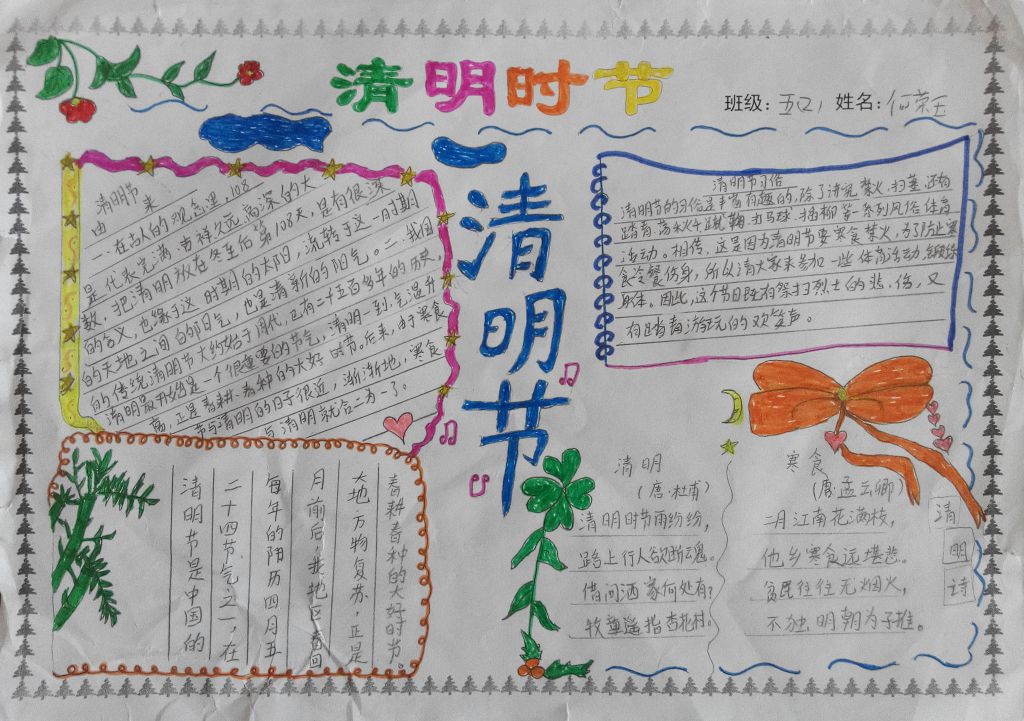 清明时节
班级：五(2) 姓名：何荣玉
清明节
清明节来
由
一.在古人的观念里，108
是代表完满、吉祥、久远、高深的大
数，把清明放在冬至后第108天，是有很深
的含义，也缘于这一时期的太阳，流转于这一月时期
的天地之间的阳气，也是清新的阳气。二.我国
的传统清明节大约始于周代，已有二千五百多年的历史，
清明最开始是一个很重要的节气，清明一到，气温升
高，正是春耕春种的大好时节。后来，由于寒食
节与清明的日子很近，渐渐地，寒食
与清明就合二为一了。
清明节习俗
清明节的习俗是丰富有趣的，除了讲究禁火、扫墓，还有
踏青、荡秋千、蹴鞠、打马球、插柳等一系列风俗体育
活动。相传，这是因为清明节要寒食禁火，为了防止寒
食冷餐伤身，所以请大家来参加一些体育活动，锻炼
身体。因此，这个节日既有祭扫烈士的悲伤，又
有踏青游玩的欢笑声。
清明节是中国的
二十四节气之一，在
每年的阳历四月五
月前后，我把区春回
大地，万物复苏，正是
春耕春种的大好时节。
清明
（唐·杜甫）
清明时节雨纷纷，
路上行人欲断魂。
借问酒家何处有？
牧童遥指杏花村。
寒食
（唐·孟云卿）
二月江南花满枝，
他乡寒食远堪悲。
贫居往往无烟火，
不独明朝为子推。
清
明
诗